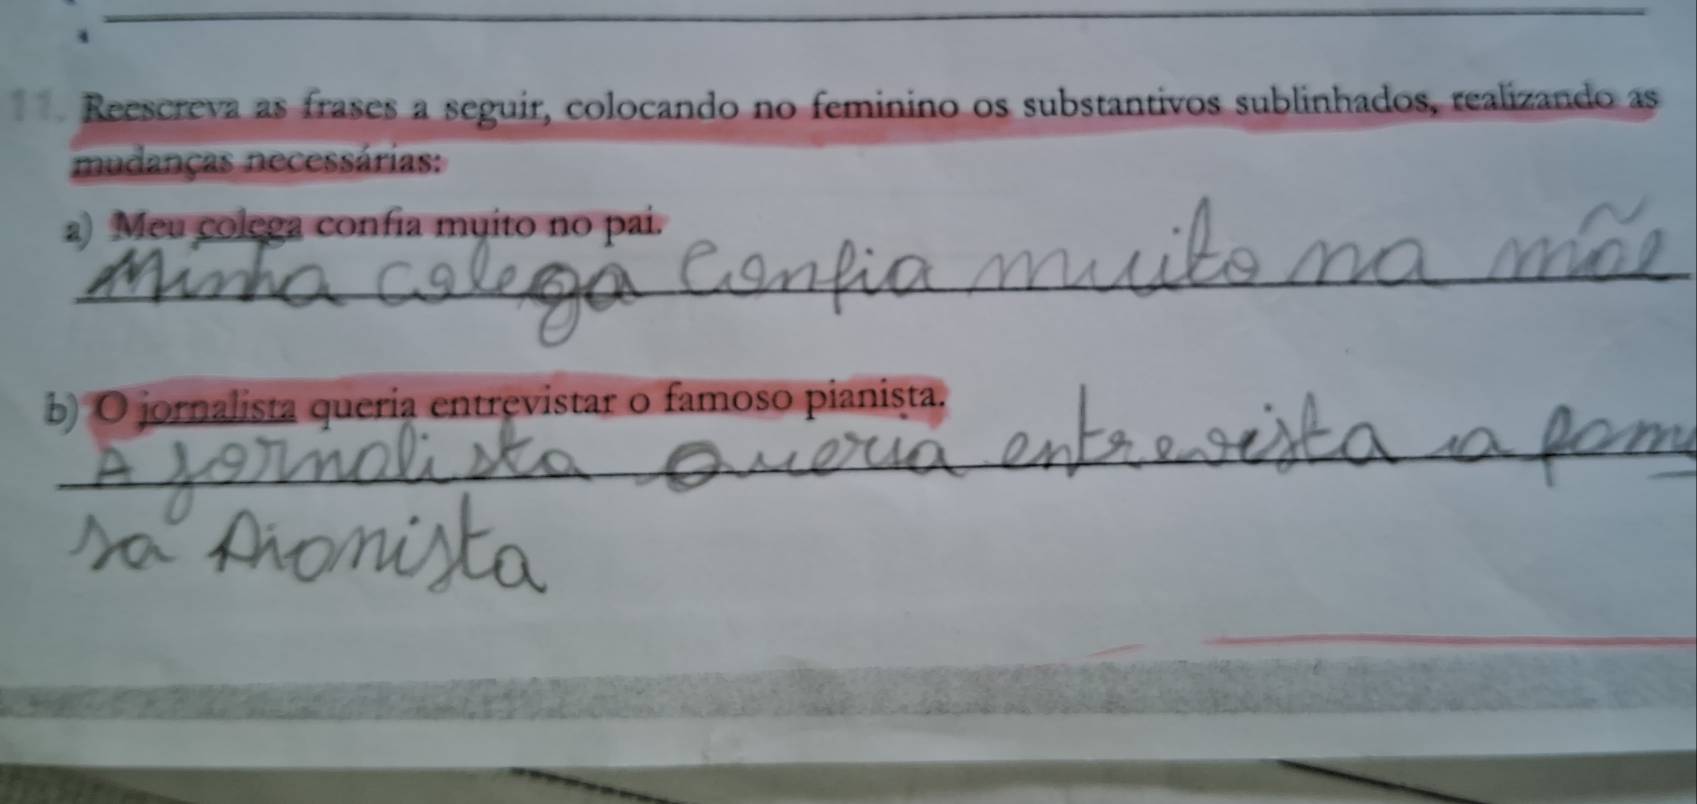 11. Reescreva as frases a seguir, colocando no feminino os substantivos sublinhados, realizando as
mudanças necessárias:
a) Meu colega confia muito no pai.
Minha colega confia muito na mãe
b) O jornalista queria entrevistar o famoso pianista.
A jornalista queria entrevista a famo
sa pianista